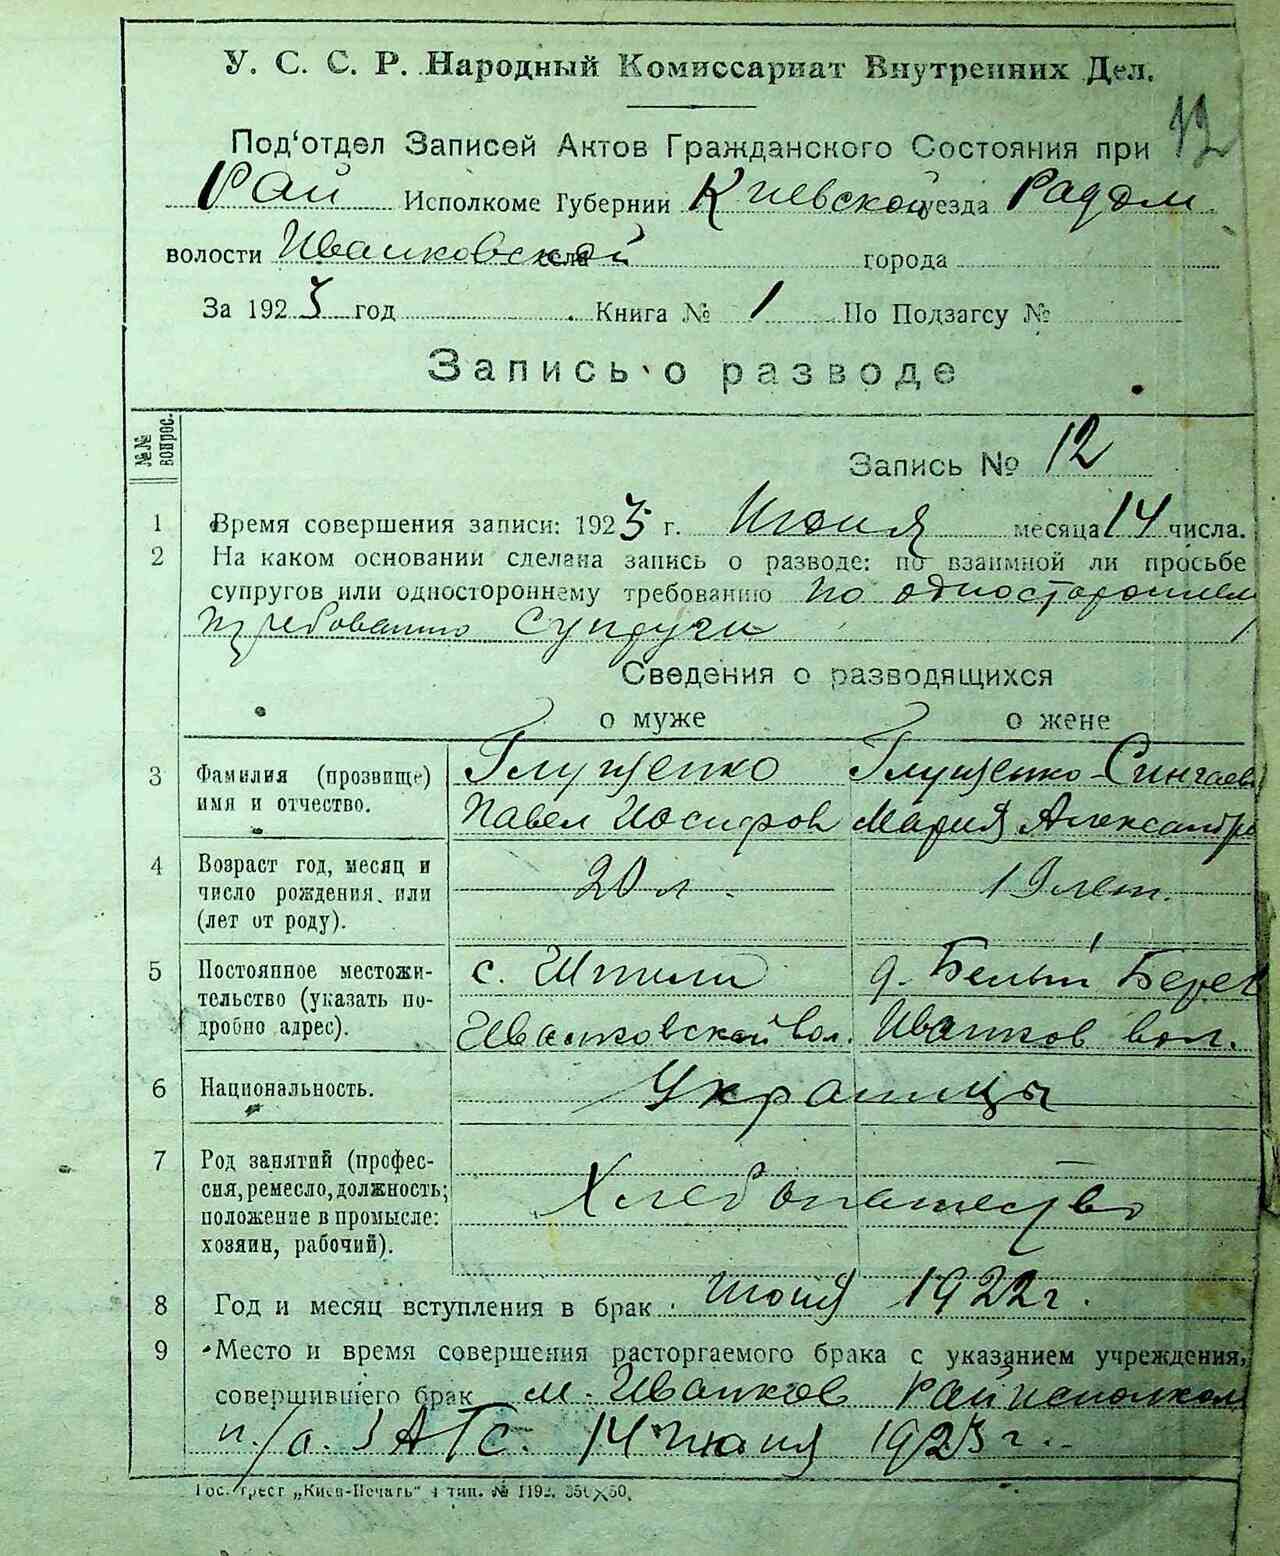 У. С. С. Р. Народный Комиссариат Внутренних Дел.
12
Под'отдел Записей Актов Гражданского Состояния при
Рай Исполкоме Губернии Киевской уезда Радом.
волости Иванковской села города
За 1923 год Книга № 1 По Подзагсу №
Запись о разводе
№№ вопрос.
Запись № 12
1 Время совершения записи: 1923 г. Июня месяца 14 числа.
2 На каком основании сделана запись о разводе: по взаимной ли просьбе
супругов или одностороннему требованию по одностороннем
требованию Супруги
Сведения о разводящихся
о муже о жене
3 Фамилия (прозвище) Глущенко Глущенко-Сингаев
имя и отчество. Павел Иосифов Мария Александро
4 Возраст год, месяц и
число рождения, или 20 л. 19 лет.
(лет от роду).
5 Постоянное местожи- с. Шпили д. Белый Берег
тельство (указать по-
дробно адрес). Иванковской вол. Иванков вол.
6 Национальность. Украинцы
7 Род занятий (профес-
сия, ремесло, должность;
положение в промысле: Хлебопашество
хозяин, рабочий).
8 Год и месяц вступления в брак Июня 1922 г.
9 Место и время совершения расторгаемого брака с указанием учреждения,
совершившего брак м. Иванков Райисполком
п/о. ЗАГС. 14 июня 1923 г.
Гос. трест „Киев-Печать" 4 тип. № 1192. 350×50.